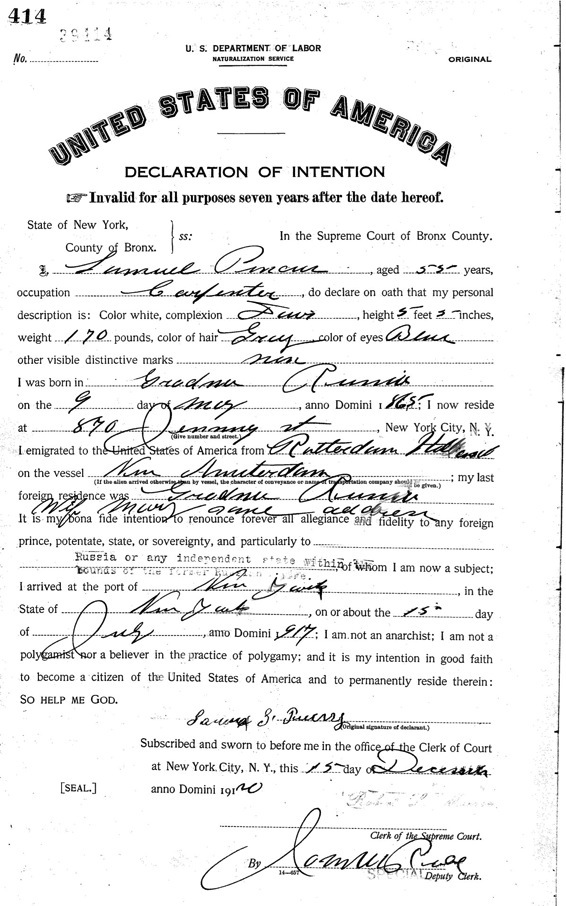 414
39414
No.
U. S. DEPARTMENT OF LABOR
NATURALIZATION SERVICE
ORIGINAL
UNITED STATES OF AMERICA
DECLARATION OF INTENTION
☞ Invalid for all purposes seven years after the date hereof.
State of New York,
County of Bronx.
ss:
In the Supreme Court of Bronx County.
I, Samuel Pincus, aged 55 years,
occupation Carpenter, do declare on oath that my personal
description is: Color white, complexion, height 5 feet 5 inches,
weight 170 pounds, color of hair Grey color of eyes Blue
other visible distinctive marks none
I was born in Grodner Russia
on the 9 day of May, anno Domini 1865; I now reside
at 870 st, New York City, N. Y.
(Give number and street.)
I emigrated to the United States of America from Rotterdam Holland
on the vessel New Amsterdam; my last
(If the alien arrived otherwise than by vessel, the character of conveyance or name of transportation company should be given.)
foreign residence was Grodner Russia
Wife Mary same address
It is my bona fide intention to renounce forever all allegiance and fidelity to any foreign
prince, potentate, state, or sovereignty, and particularly to
Russia or any independent state within
bounds of the former, of whom I am now a subject;
I arrived at the port of New York, in the
State of New York, on or about the 15 day
of July, anno Domini 1917; I am not an anarchist; I am not a
polygamist nor a believer in the practice of polygamy; and it is my intention in good faith
to become a citizen of the United States of America and to permanently reside therein:
SO HELP ME GOD.
(Original signature of declarant.)
Subscribed and sworn to before me in the office of the Clerk of Court
at New York City, N. Y., this 15 day of December
[SEAL.]
anno Domini 1920
Clerk of the Supreme Court.
By
14—657
SPECIAL Deputy Clerk.